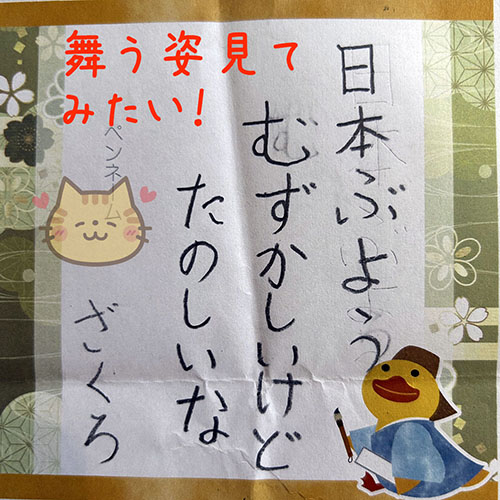 舞う姿見て
みたい!
日本ぶよう
むずかしいけど
たのしいな
ペンネーム
ざくろ